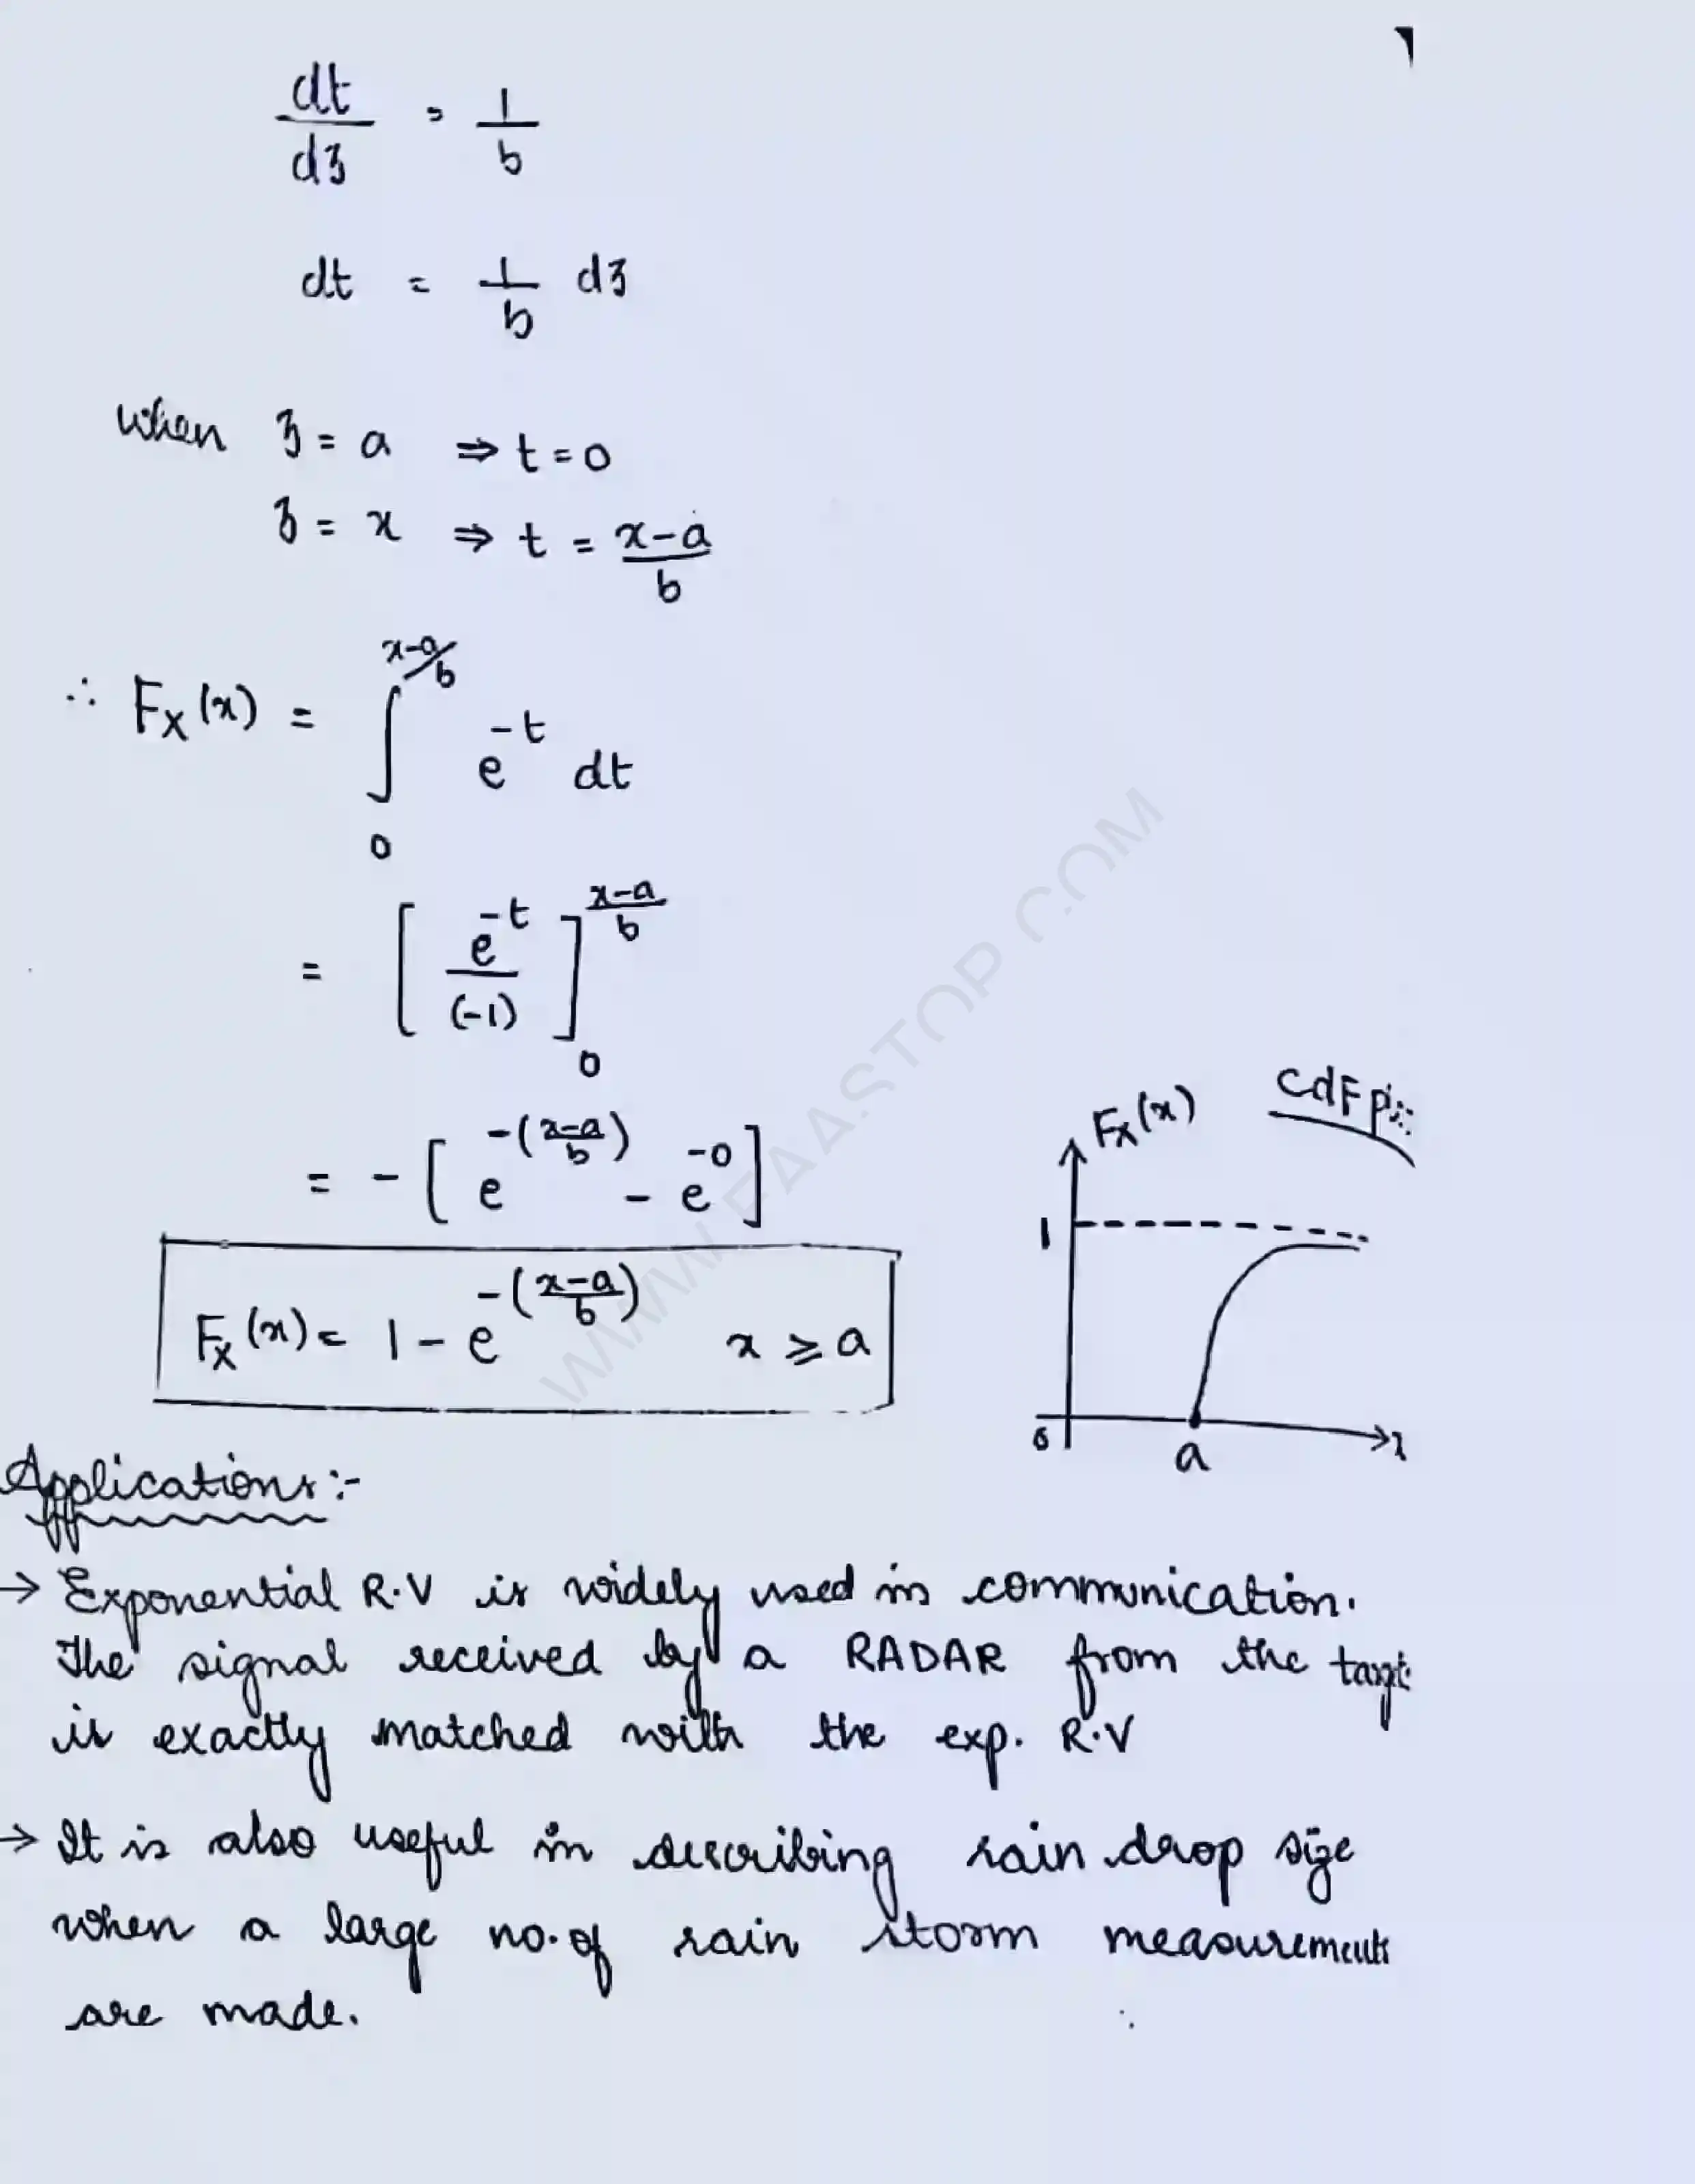 dt/dz = 1/b
dt = 1/b dz
when z = a ⇒ t = 0
z = x ⇒ t = (x-a)/b
∴ F_X(x) = ∫_0^{x-a/b} e^{-t} dt
= [ e^{-t}/(-1) ]_0^{(x-a)/b}
= - [ e^{-((x-a)/b)} - e^{-0} ]
F_X(x) = 1 - e^{-((x-a)/b)} x ≥ a
CdF
F_X(x)
1
0
a
x
Applications :-
→ Exponential R.V is widely used in communication.
The signal received by a RADAR from the
is exactly matched with the exp. R.V
→ It is also useful in describing rain drop size
when a large no. of rain storm measurements
are made.
WWW.FAASTOP.COM